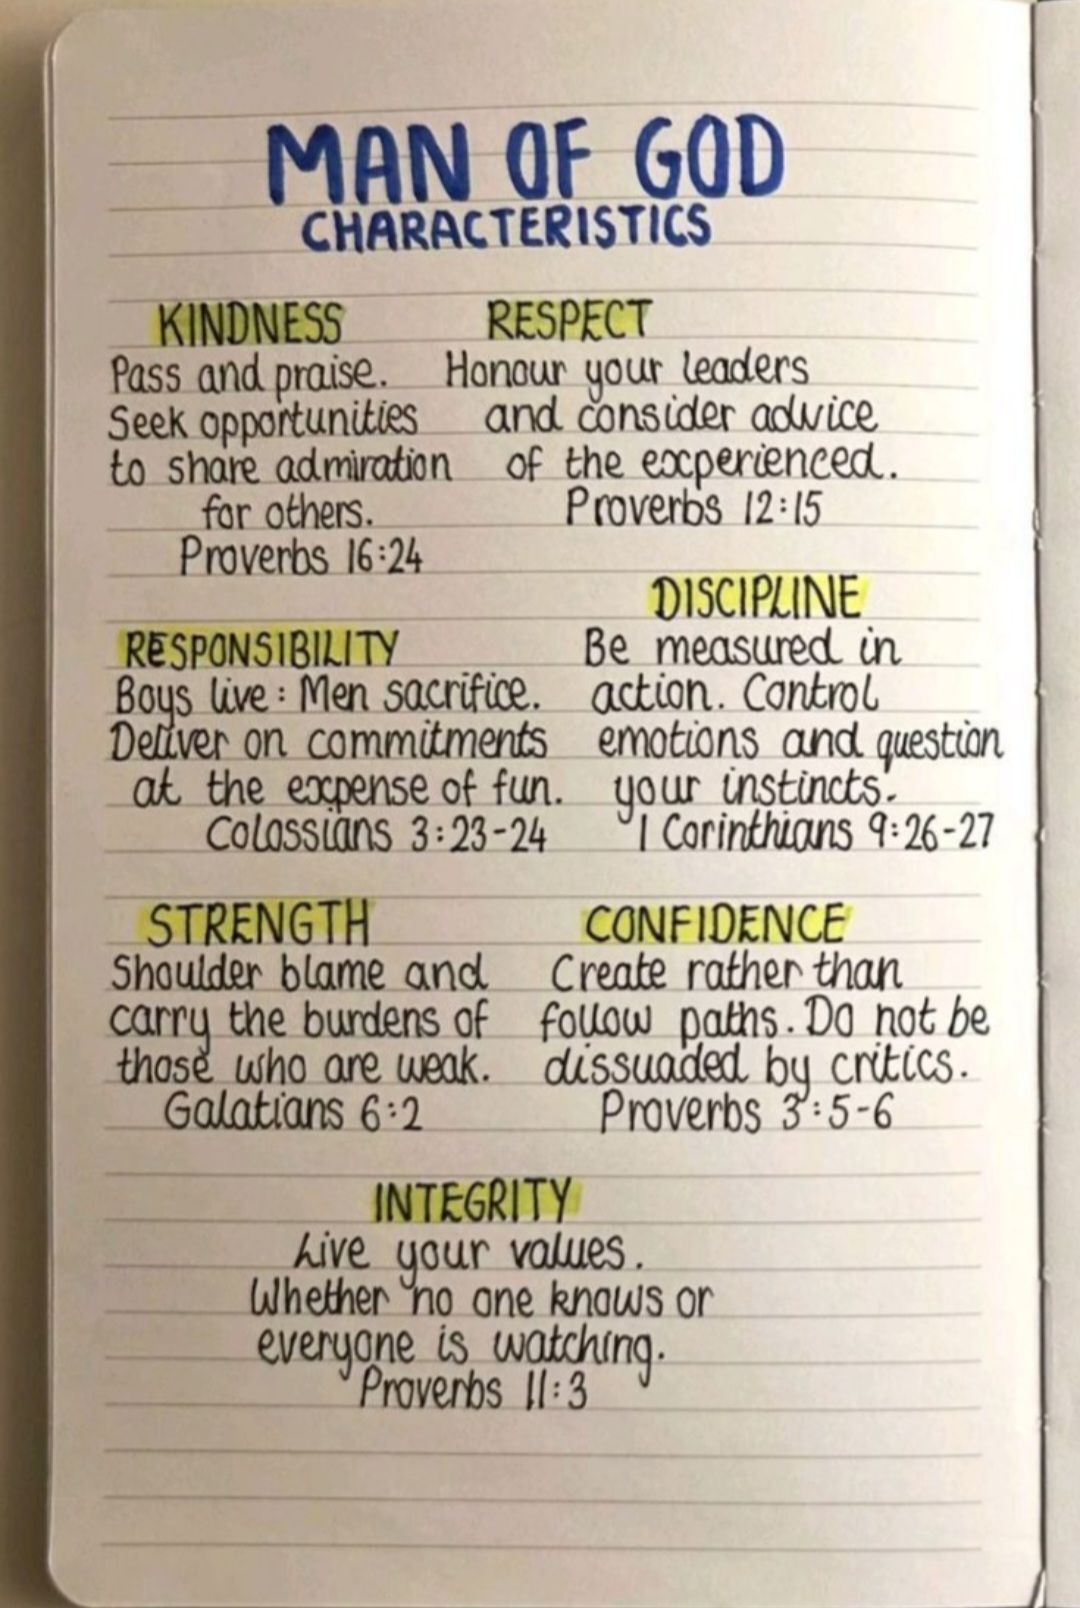 MAN OF GOD
CHARACTERISTICS
KINDNESS
Pass and praise.
Seek opportunities
to share admiration
for others.
Proverbs 16:24
RESPECT
Honour your leaders
and consider advice
of the experienced.
Proverbs 12:15
RESPONSIBILITY
Boys live: Men sacrifice.
Deliver on commitments
at the expense of fun.
Colossians 3:23-24
DISCIPLINE
Be measured in
action. Control
emotions and question
your instincts.
1 Corinthians 9:26-27
STRENGTH
Shoulder blame and
carry the burdens of
those who are weak.
Galatians 6:2
CONFIDENCE
Create rather than
follow paths. Do not be
dissuaded by critics.
Proverbs 3:5-6
INTEGRITY
Live your values.
Whether no one knows or
everyone is watching.
Proverbs 11:3